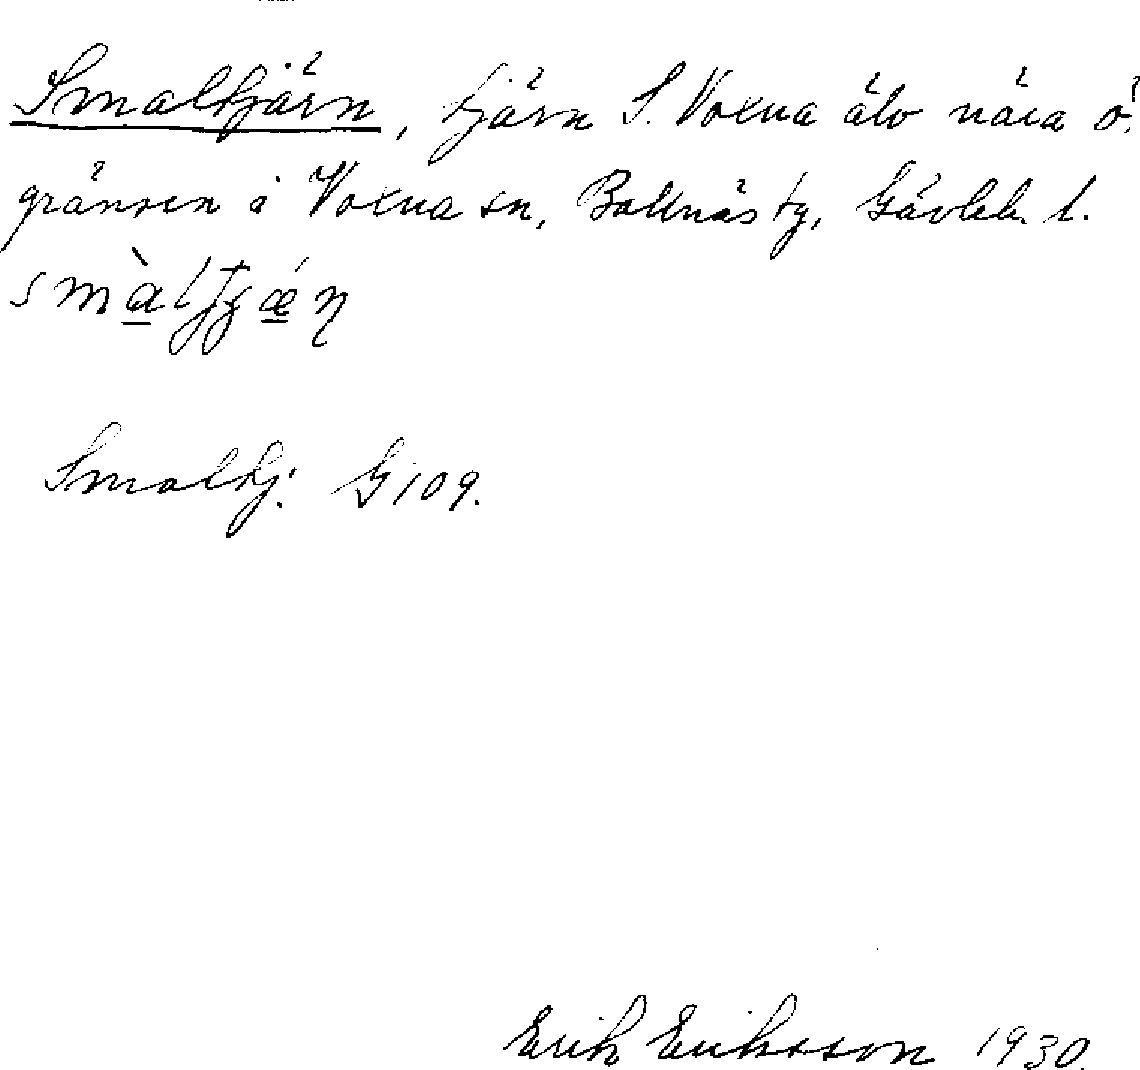 Smaltjärn, tjärn S. Voxna älv nära ö.
gränsen i Voxna sn, Bollnäs tg, Gävleb. l.
Smaltj. G 109.
Erik Eriksson 1930.